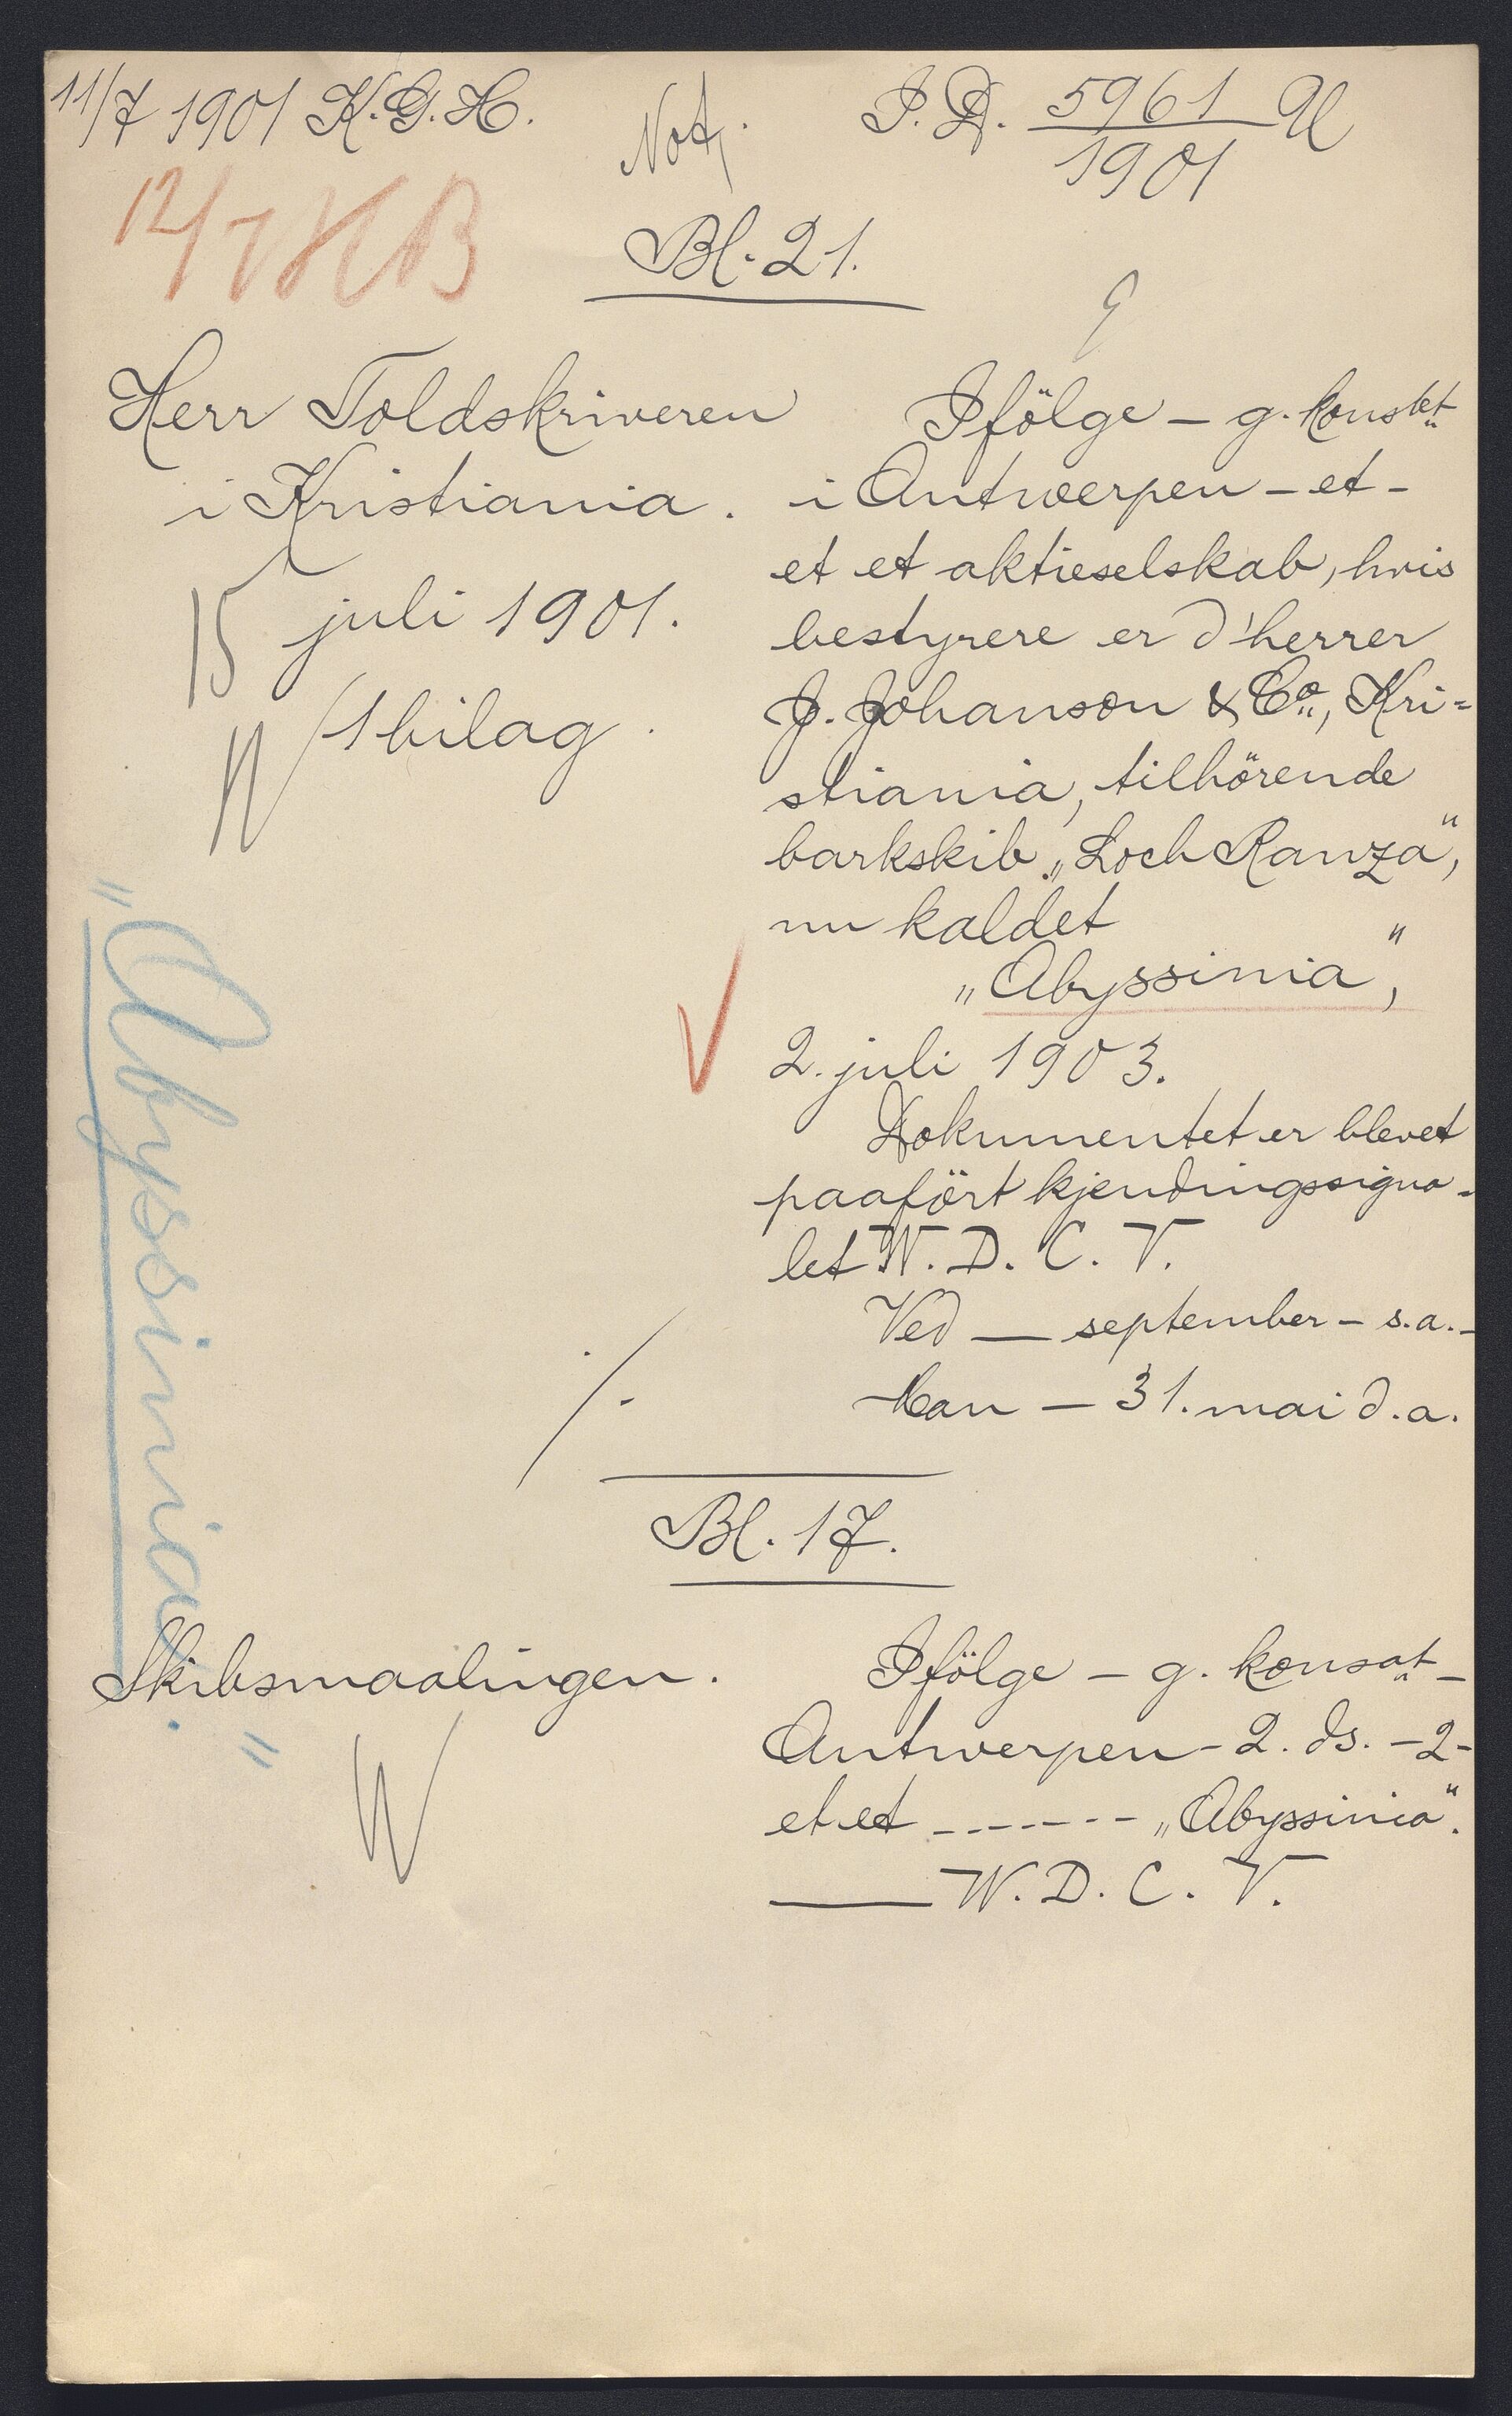 11/7 1901 K.G.H.
Not.
I.D. 5961 U
1901
12/7 HB
Bl. 21.
Herr Toldskriveren
i Kristiania.
15 juli 1901.
1 bilag.
Ifölge – g. konslet
i Antwerpen – et –
et et aktieselskab, hvis
bestyrere er d'herrer
J. Johanson & Co., Kri=
stiania, tilhörende
barkskib „Loch Ranza",
nu kaldet
„Abyssinia",
2. juli 1903.
Dokumentet er blevet
paafört kjendingssigna-
let W. D. C. T.
Ved — september – s.a. –
Man – 31. mai d.a.
„Abyssinia."
Bl. 17.
Skibsmaalingen.
Ifölge – g. konsat –
Antwerpen – 2. ds. – 2 –
et et ------- „Abyssinia".
— W. D. C. T.